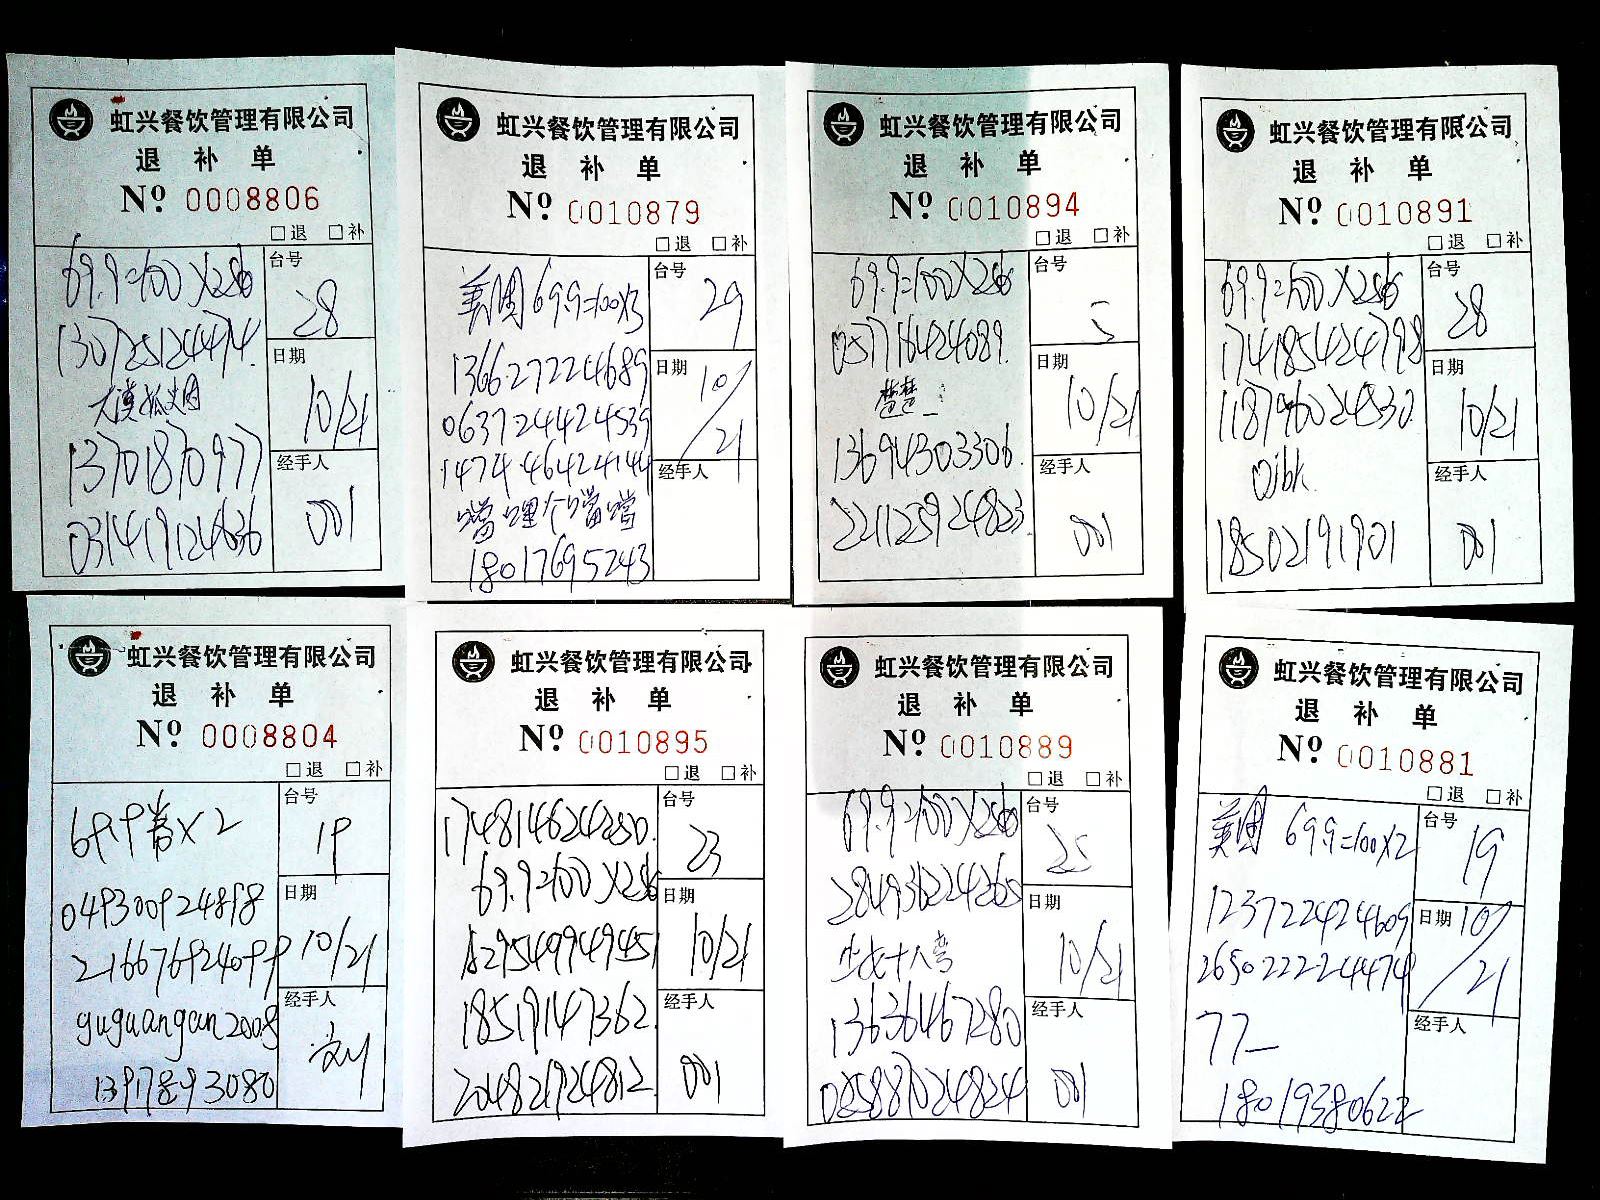 虹兴餐饮管理有限公司
退 补 单
Nº 0008806
□退 □补
69.9=100X2份
台号
28
130725124474.
日期
10/21
大漠孤烟
13701870977
经手人
001
031419124636
虹兴餐饮管理有限公司
退 补 单
Nº 0010879
□退 □补
美团 69.9=100X3
台号
29
1366272224689
日期
10/21
0637244424539
147446424144
经手人
18017695243
虹兴餐饮管理有限公司
退 补 单
Nº 0010894
□退 □补
69.9=100X2份
台号
5
057718424089.
日期
10/21
楚楚_
13694303306.
经手人
001
221125924823
虹兴餐饮管理有限公司
退 补 单
Nº 0010891
□退 □补
69.9=100X2份
台号
28
174185424798
日期
10/21
118796024830.
经手人
18502191901
001
虹兴餐饮管理有限公司
退 补 单
Nº 0008804
□退 □补
69.9券X2
台号
19
049300924898
日期
10/21
216676924099
guguangun2008
经手人
刘
13917893080
虹兴餐饮管理有限公司
退 补 单
Nº 0010895
□退 □补
174814624250.
台号
23
69.9=100X2份
日期
10/21
18519147362.
经手人
001
204821924812
虹兴餐饮管理有限公司
退 补 单
Nº 0010889
□退 □补
69.9=100X2份
台号
25
284936224265
日期
10/21
十八弯
13636467280
经手人
001
025887024824
虹兴餐饮管理有限公司
退 补 单
Nº 0010881
□退 □补
美团 69.9=100X2
台号
19
1237224424609
日期
10/21
2650222244474
77_
经手人
18019380622